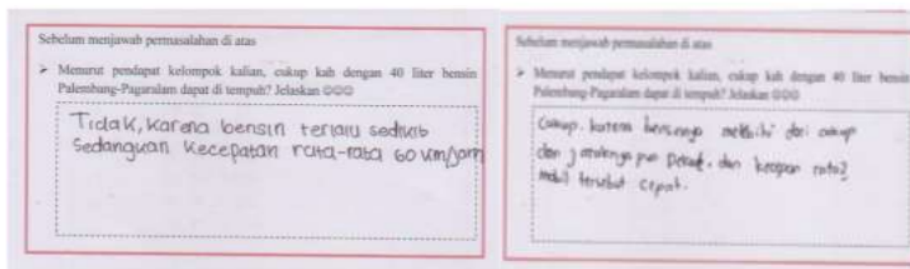 Sebelum menjawab permasalahan di atas
➢ Menurut pendapat kelompok kalian, cukup kah dengan 40 liter bensin
Palembang-Pagaralam dapat di tempuh? Jelaskan ☺☺☺
Tidak, karena bensin terlalu sedikit
Sedangkan kecepatan rata-rata 60 km/jam
Sebelum menjawab permasalahan di atas
➢ Menurut pendapat kelompok kalian, cukup kah dengan 40 liter bensin
Palembang-Pagaralam dapat di tempuh? Jelaskan ☺☺☺
Cukup. karena bensinnya melebihi dari cukup
dan jaraknya pun Dekat. dan rata2
mobil tersebut cepat.